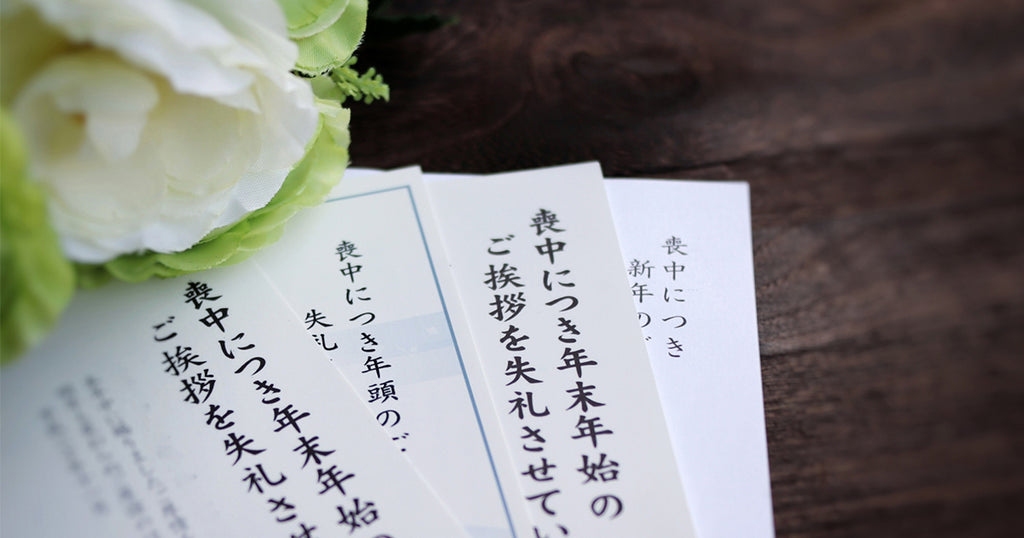 喪中につき
新年の
喪中につき年末年始の
ご挨拶を失礼させてい
喪中につき年頭のご
失礼
喪中につき年末年始の
ご挨拶を失礼させ